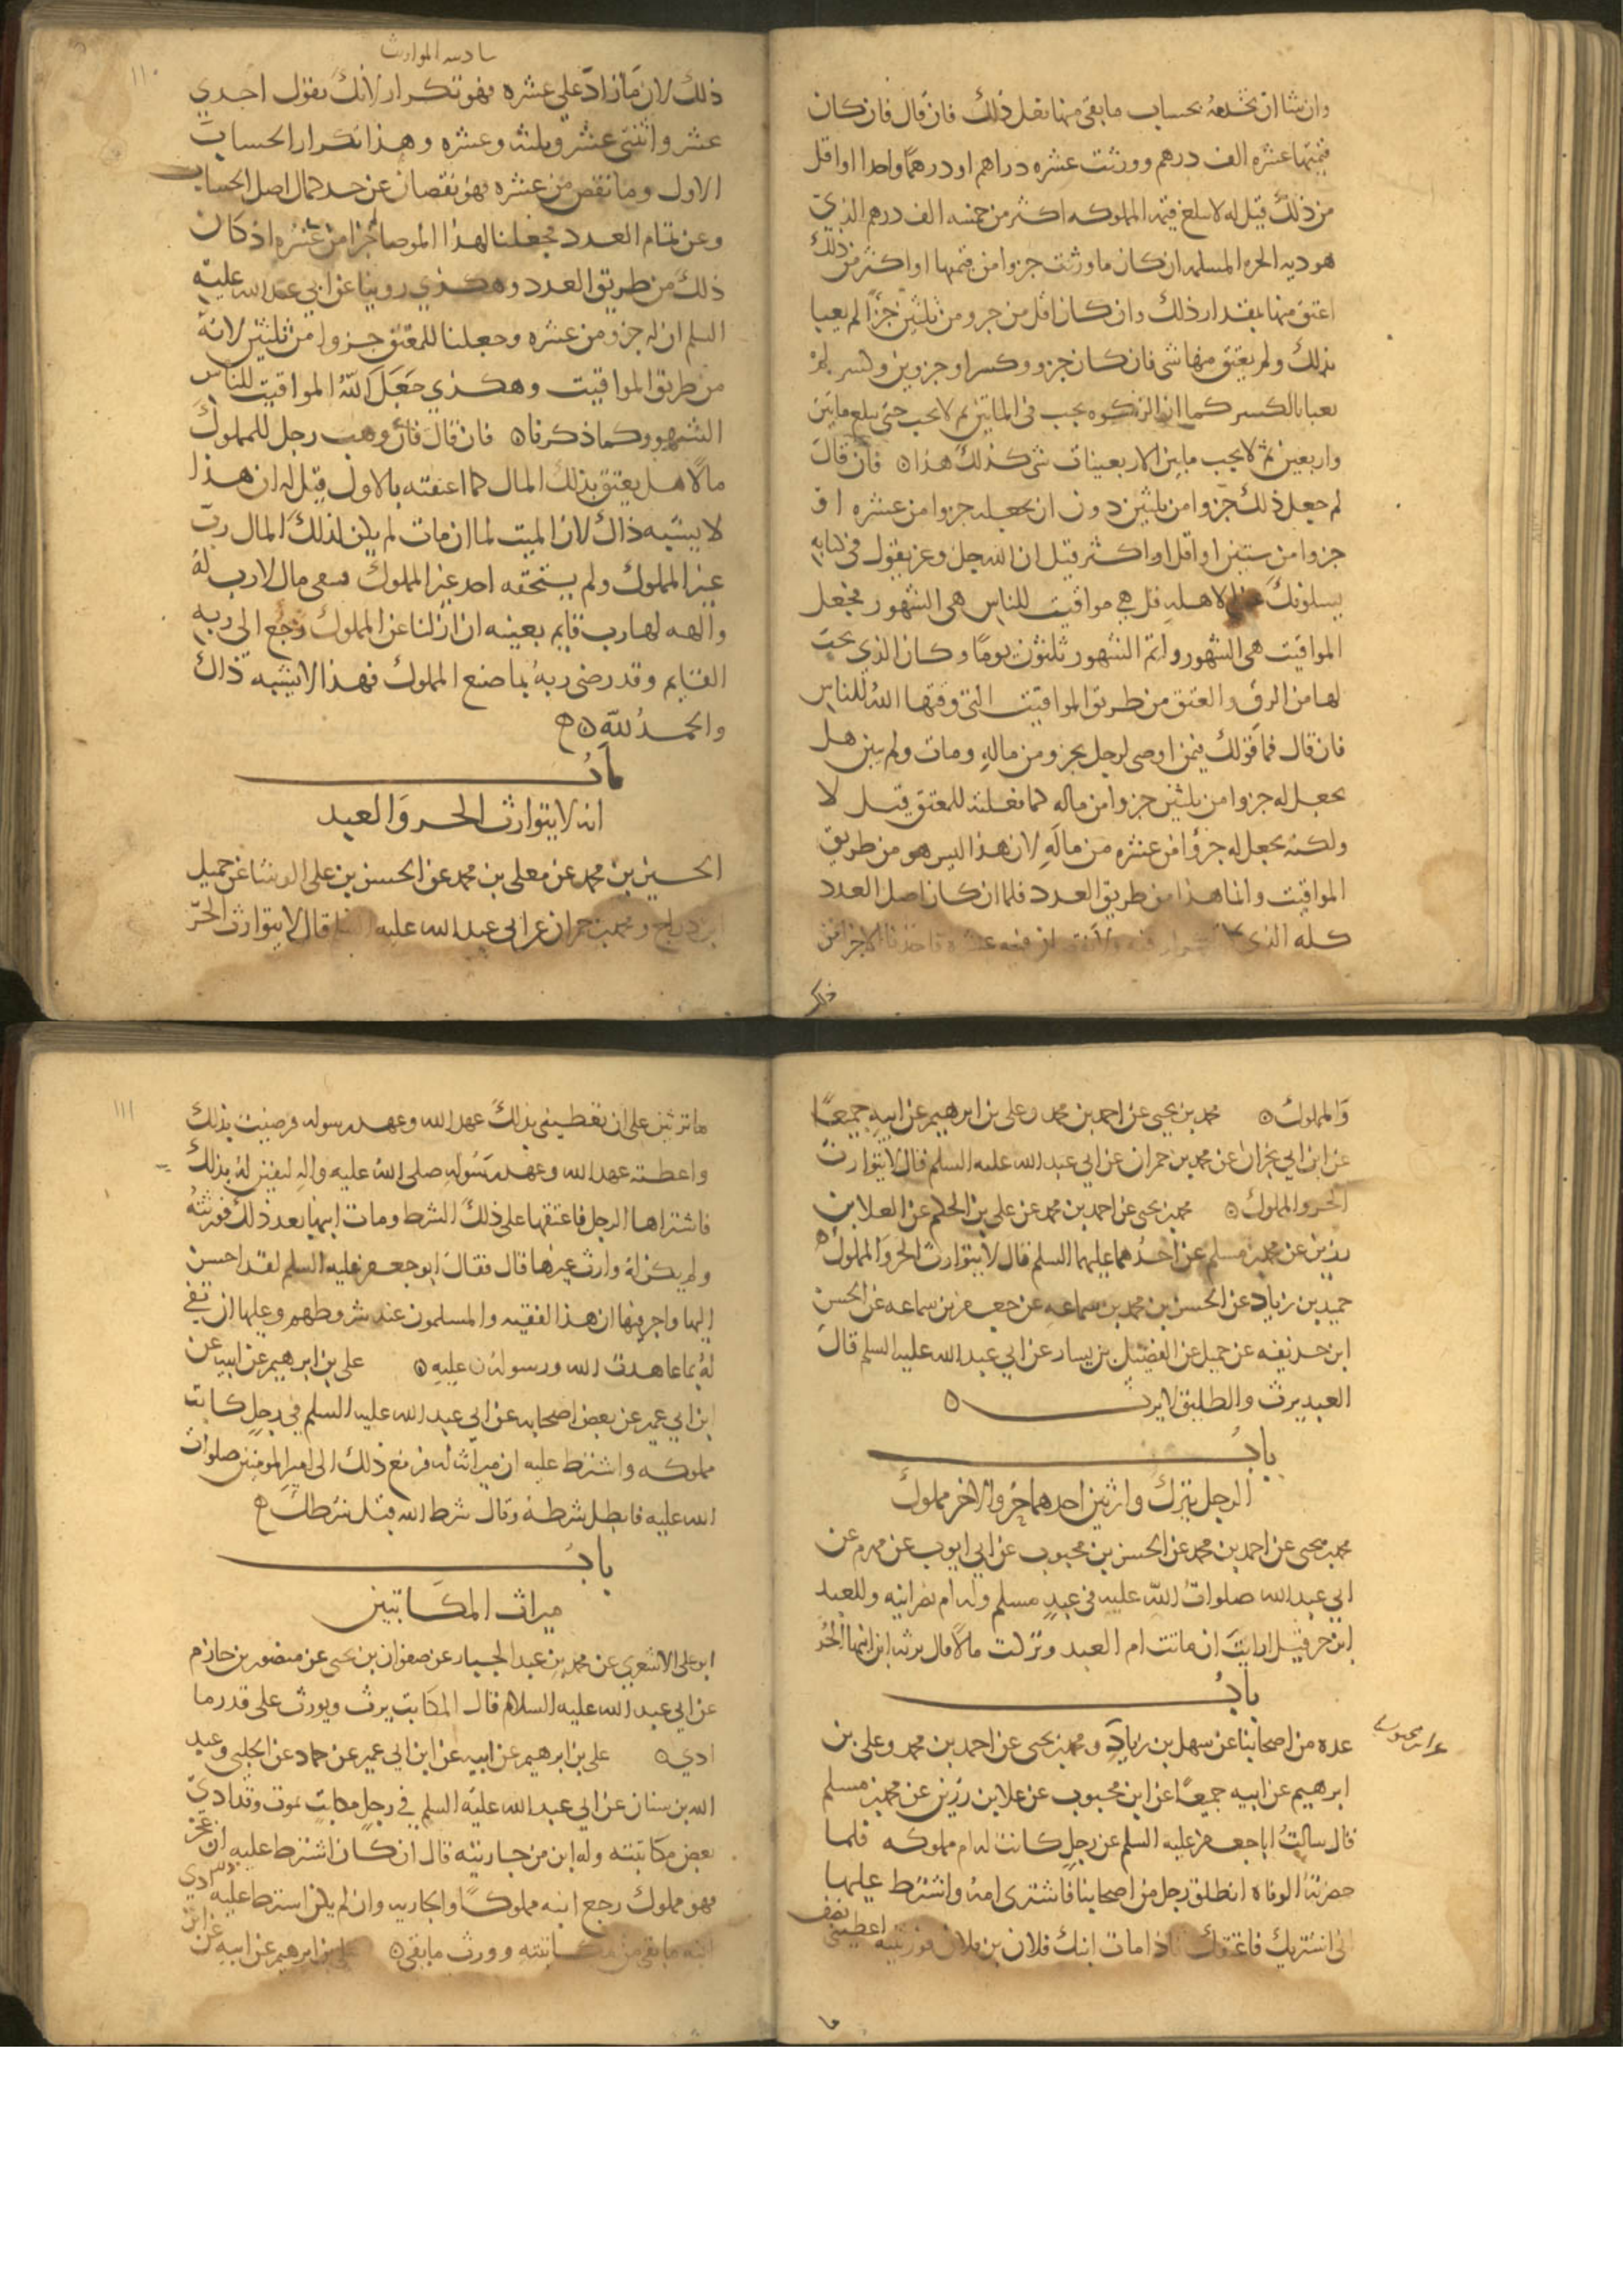 وان شا ان يخدمه بحساب ما بقى منها فعل ذلك فان قال فان كان
قيمتها عشره الف درهم وورثت عشره دراهم او درهما واحدا او اقل
من ذلك قيل له لا تبلغ قيمه المملوكه اكثر من خمسه الف درهم الذي
هو ديه الحره المسلمه ان كان ما ورثت جزوا من قيمتها او اكثر من ذلك
اعتق منها بمقدار ذلك وان كان اقل من جزو من ثلثين جزءًا لم يعبا
بذلك ولم يعتق منها شى فان كان جزو وكسر او جزوين وكسر لم
يعبا بالكسر كما ان الزكوه تجب فى الماتين ثم لا تجب حتى تبلغ ماتين
واربعين ثم لا تجب ما بين الاربعينات شى كذلك هذا ه فان قال
لم جعل ذلك جزوا من ثلثين دون ان تجعله جزوا من عشره او
جزوا من ستين او اقل او اكثر قيل ان الله جل وعز يقول فى كتابه
يسلونك الاهله قل هي مواقيت للناس هى الشهور فجعل
المواقيت هى الشهور واتم الشهور ثلثون يوما وكان الذي يجب
لها من الرق والعتق من طريق المواقيت التى وقتها الله للناس
فان قال فما قولك فيمن اوصى لرجل بجزو من ماله ومات ولم يبين هل
يجعل له جزوا من ثلثين جزوا من ماله كما فعلته للمعتق قيل لا
ولكنه يجعل له جزوًا من عشره من ماله لان هذا ليس هو من طريق
المواقيت وانما هذا من طريق العدد فلما ان كان اصل العدد
كله الذى لا تكرار فيه ولا نقصان فيه عشره فاخذنا الاجزا من
ذلك
سادسه المواريث
١١٠
ذلك لان ما زاد على عشره فهو تكرار لانك تقول احدى
عشر واثنتى عشر وثلثه وعشره وهذا تكرار الحساب
الاول وما نقص من عشره فهو نقصان عن حد كمال اصل الحساب
وعن تمام العدد فجعلنا لهذا الموصا له جزا من عشره اذ كان
ذلك من طريق العدد وهكذي روينا عن ابي عبد الله عليه
السلم ان له جزو من عشره وجعلنا للمعتق جزوا من ثلثين لانه
من طريق المواقيت وهكذي جَعَلَ اللّهُ المواقيت للناس
الشهور وكما ذكرناه فان قال فان وهب رجل للمملوك
مالا هل يعتق بذلك المال كما اعتقته بالاول قيل له ان هذا
لا يشبه ذاك لان الميت لما ان مات لم يكن لذلك المال رب
غير المملوك ولم يستحقه احد غير المملوك فبقى مال لا رب له
والهبه لها رب قايم بعينه ان ازلنا عن المملوك رجع الى ربه
القايم وقد رضى ربه بما صنع المملوك فهذا لا يشبه ذاك
والحمد لله ه
باب
انه لا يتوارث الحر والعبد
الحسين بن محمد عن معلى بن محمد عن الحسن بن على الوشا عن جميل
ابن دراج ومحمد بن حمران عن ابى عبد الله عليه السلم قال لا يتوارث الحر
والمملوك ه محمد بن يحيى عن احمد بن محمد وعلى بن ابرهيم عن ابيه جميعًا
عن ابن ابي نجران عن محمد بن حمران عن ابي عبد الله عليه السلم قال لا يتوارث
الحر والمملوك ه محمد بن يحيى عن احمد بن محمد عن على بن الحكم عن العلا بن
رزين عن محمد بن مسلم عن احدهما عليهما السلم قال لا يتوارث الحر والمملوك ه
حميد بن زياد عن الحسن بن محمد بن سماعه عن جعفر بن سماعه عن الحسن
ابن حذيفه عن جميل عن الفضيل بن يسار عن ابي عبد الله عليه السلم قال
العبد يرث والطليق لا يرث ه
باب
الرجل يترك وارثين احدهما حر والاخر مملوك
محمد بن يحيى عن احمد بن محمد عن الحسن بن محبوب عن ابي ايوب عن مهزم عن
ابي عبد الله صلوات الله عليه فى عبد مسلم وله ام نصرانيه وللعبد
ابن حر قيل ارايت ان ماتت ام العبد وتركت مالا قال يرثه ابن ابنها الحر
باب
عده من اصحابنا عن سهل بن زياد ومحمد بن يحيى عن احمد بن محمد وعلى بن
ابرهيم عن ابيه جميعًا عن ابن محبوب عن علا بن رزين عن محمد بن مسلم
قال سالت ابا جعفر عليه السلم عن رجل كانت له ام مملوكه فلما
حضرته الوفاه انطلق رجل من اصحابنا فاشترى امه واشترط عليها
انى اشتريك فاعتقك فاذا مات ابنك فلان بن فلان فورثتيه اعطيني نصف
ما
١١١
ما ترثين على ان تعطيني بذلك عهد الله وعهد رسوله فرضيت بذلك
واعطته عهد الله وعهد رسوله صلى الله عليه واله لتفين له بذلك
فاشتراها الرجل فاعتقها على ذلك الشرط ومات ابنها بعد ذلك فورثته
ولم يكن له وارث غيرها قال فقال ابو جعفر عليه السلم لقد احسن
اليها واجر فيها ان هذا لفقيه والمسلمون عند شروطهم وعليها ان تفي
له بما عاهدت الله ورسوله عليه ه على بن ابرهيم عن ابيه عن
ابن ابي عمير عن بعض اصحابه عن ابي عبد الله عليه السلم في رجل كاتب
مملوكه واشترط عليه ان ميراثه له فرفع ذلك الى امير المومنين صلوات
الله عليه فابطل شرطه وقال شرط الله قبل شرطك
باب
ميراث المكاتبين
ابو على الاشعري عن محمد بن عبد الجبار عن صفوان بن يحيى عن منصور بن حازم
عن ابي عبد الله عليه السلام قال المكاتب يرث ويورث على قدر ما
ادي ه على بن ابرهيم عن ابيه عن ابن ابي عمير عن حماد عن الحلبي وعبد
الله بن سنان عن ابي عبد الله عليه السلم في رجل مكاتب يموت وقد ادي
بعض مكاتبته وله ابن من جاريته قال ان كان اشترط عليه ان عجز
فهو مملوك رجع ابنه مملوكا والجاريه وان لم يكن اشترط عليه ادي
ابنه ما بقى من مكاتبته وورث ما بقى ه على بن ابرهيم عن ابيه عن ابن